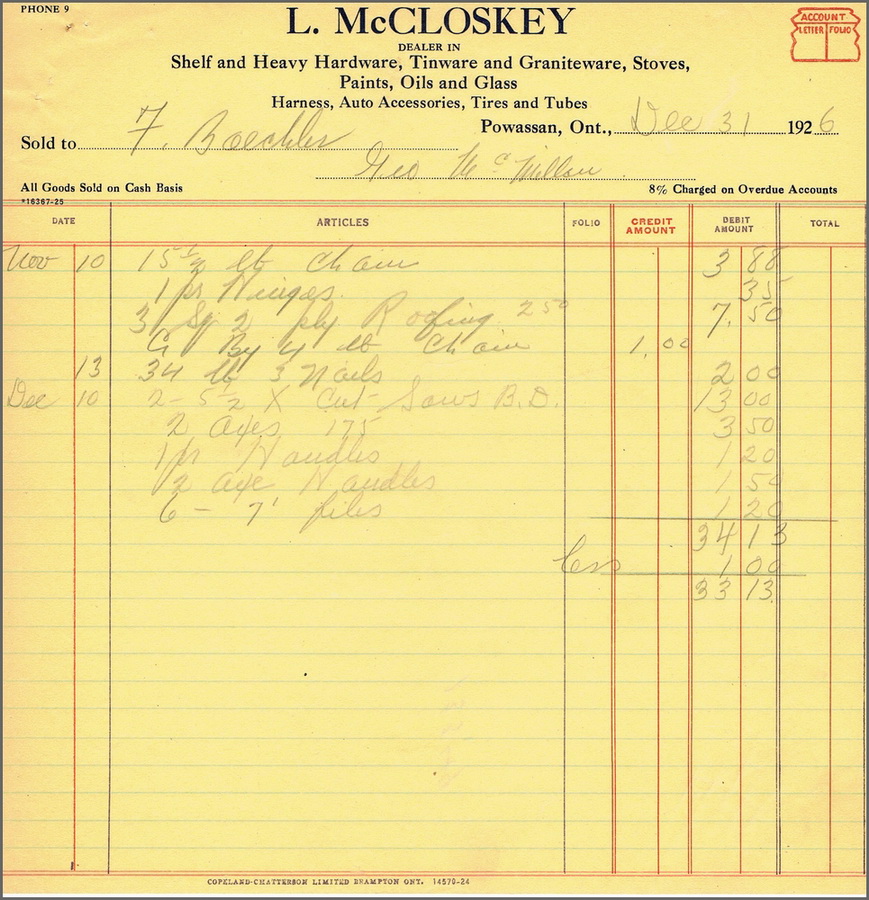 PHONE 9
L. McCLOSKEY
DEALER IN
Shelf and Heavy Hardware, Tinware and Graniteware, Stoves,
Paints, Oils and Glass
Harness, Auto Accessories, Tires and Tubes
ACCOUNT
LETTER FOLIO
Powassan, Ont., Dec 31 1926
Sold to F. Baechler
Geo McMillan
All Goods Sold on Cash Basis 8% Charged on Overdue Accounts
*16367-25
DATE ARTICLES FOLIO CREDIT AMOUNT DEBIT AMOUNT TOTAL
Nov 10 15 1/2 lb Chain 3 88
1 pr Hinges. 35
3 Sq 2 ply Roofing 2 50 7. 50
By 4 lb Chain 1.00
13 34 lb 3 Nails 2 00
Dec 10 2- 5 1/2 X Cut Saws B.D. 13 00
2 Axes 175 3 50
1 pr Handles 1 20
2 axe Handles 1 50
6 - 7' files 1 20
34 13
less 1 00
33 13
COPELAND-CHATTERSON LIMITED BRAMPTON ONT. 14570-24